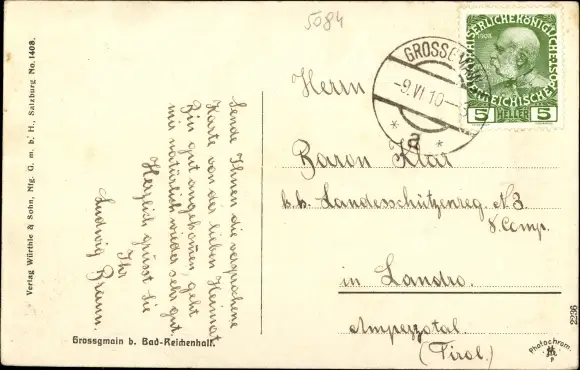 5084
Verlag Würthle & Sohn, Nfg. G. m. b. H., Salzburg No. 1408.
Sende Ihnen die versprochene
Karte von der lieben Heimat
Bin gut angekommen, geht
mir natürlich wieder sehr gut
Herzlich grüsst Sie
Ihr
Ludwig Braun.
Grossgmain b. Bad-Reichenhall.
GROSSGMAIN
-9.VI.10-
* a *
1908
KAISERLICHE KÖNIGLICHE
ÖSTERREICHISCHE
5 HELLER 5
Herrn
Baron Klar
k.k. Landesschützenreg. N. 3
8. Comp.
in Landro.
Ampezzotal.
(Tirol.)
Photochrom.
P
2236